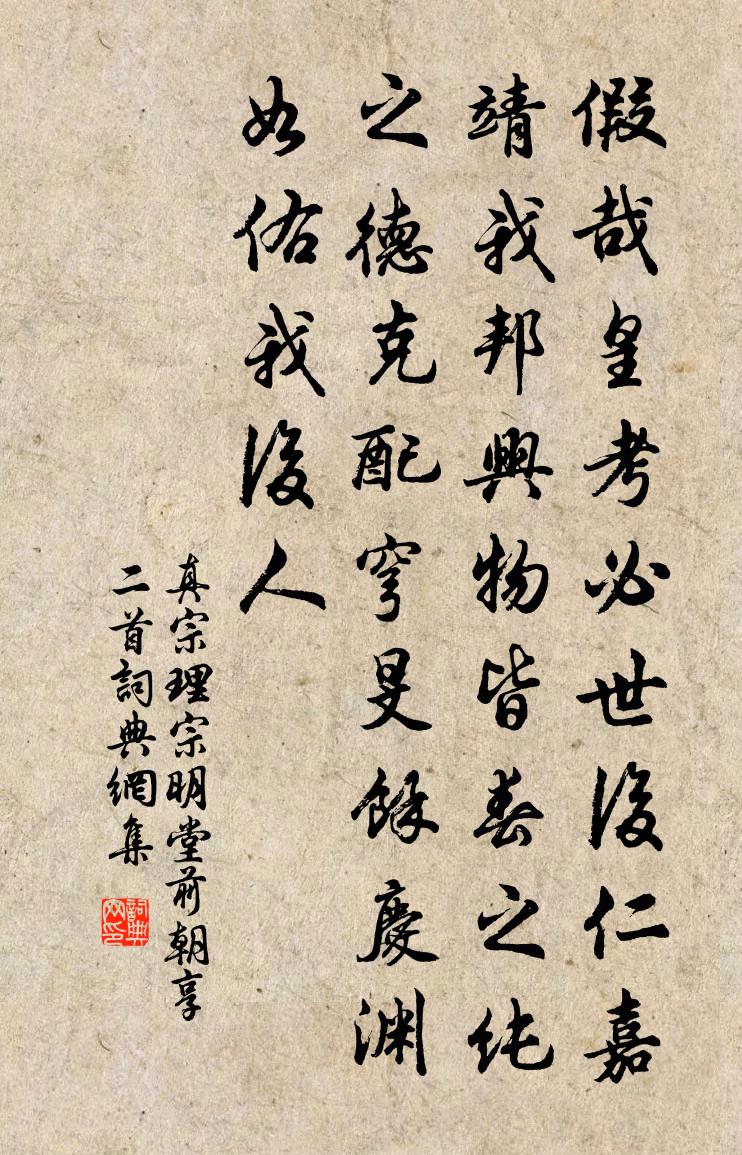 假哉皇考必世後仁嘉
靖我邦興物皆春之純
之德克配穹旻餘慶淵
如佑我後人
真宗理宗明堂前朝享
二首詞典網集
詞典
网印